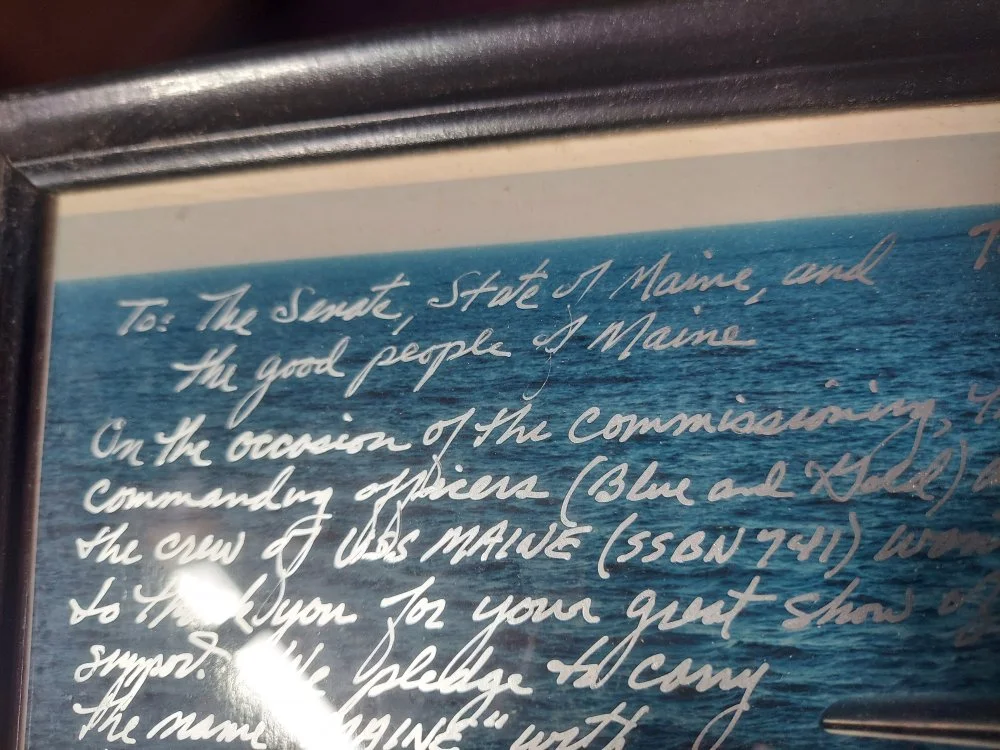 To: The Senate, State of Maine, and
the good people of Maine
On the occasion of the commissioning,
commanding officers (Blue and Gold)
the crew of USS MAINE (SSBN 741)
to thank you for your great show of
support. We pledge to carry
the name "MAINE" with